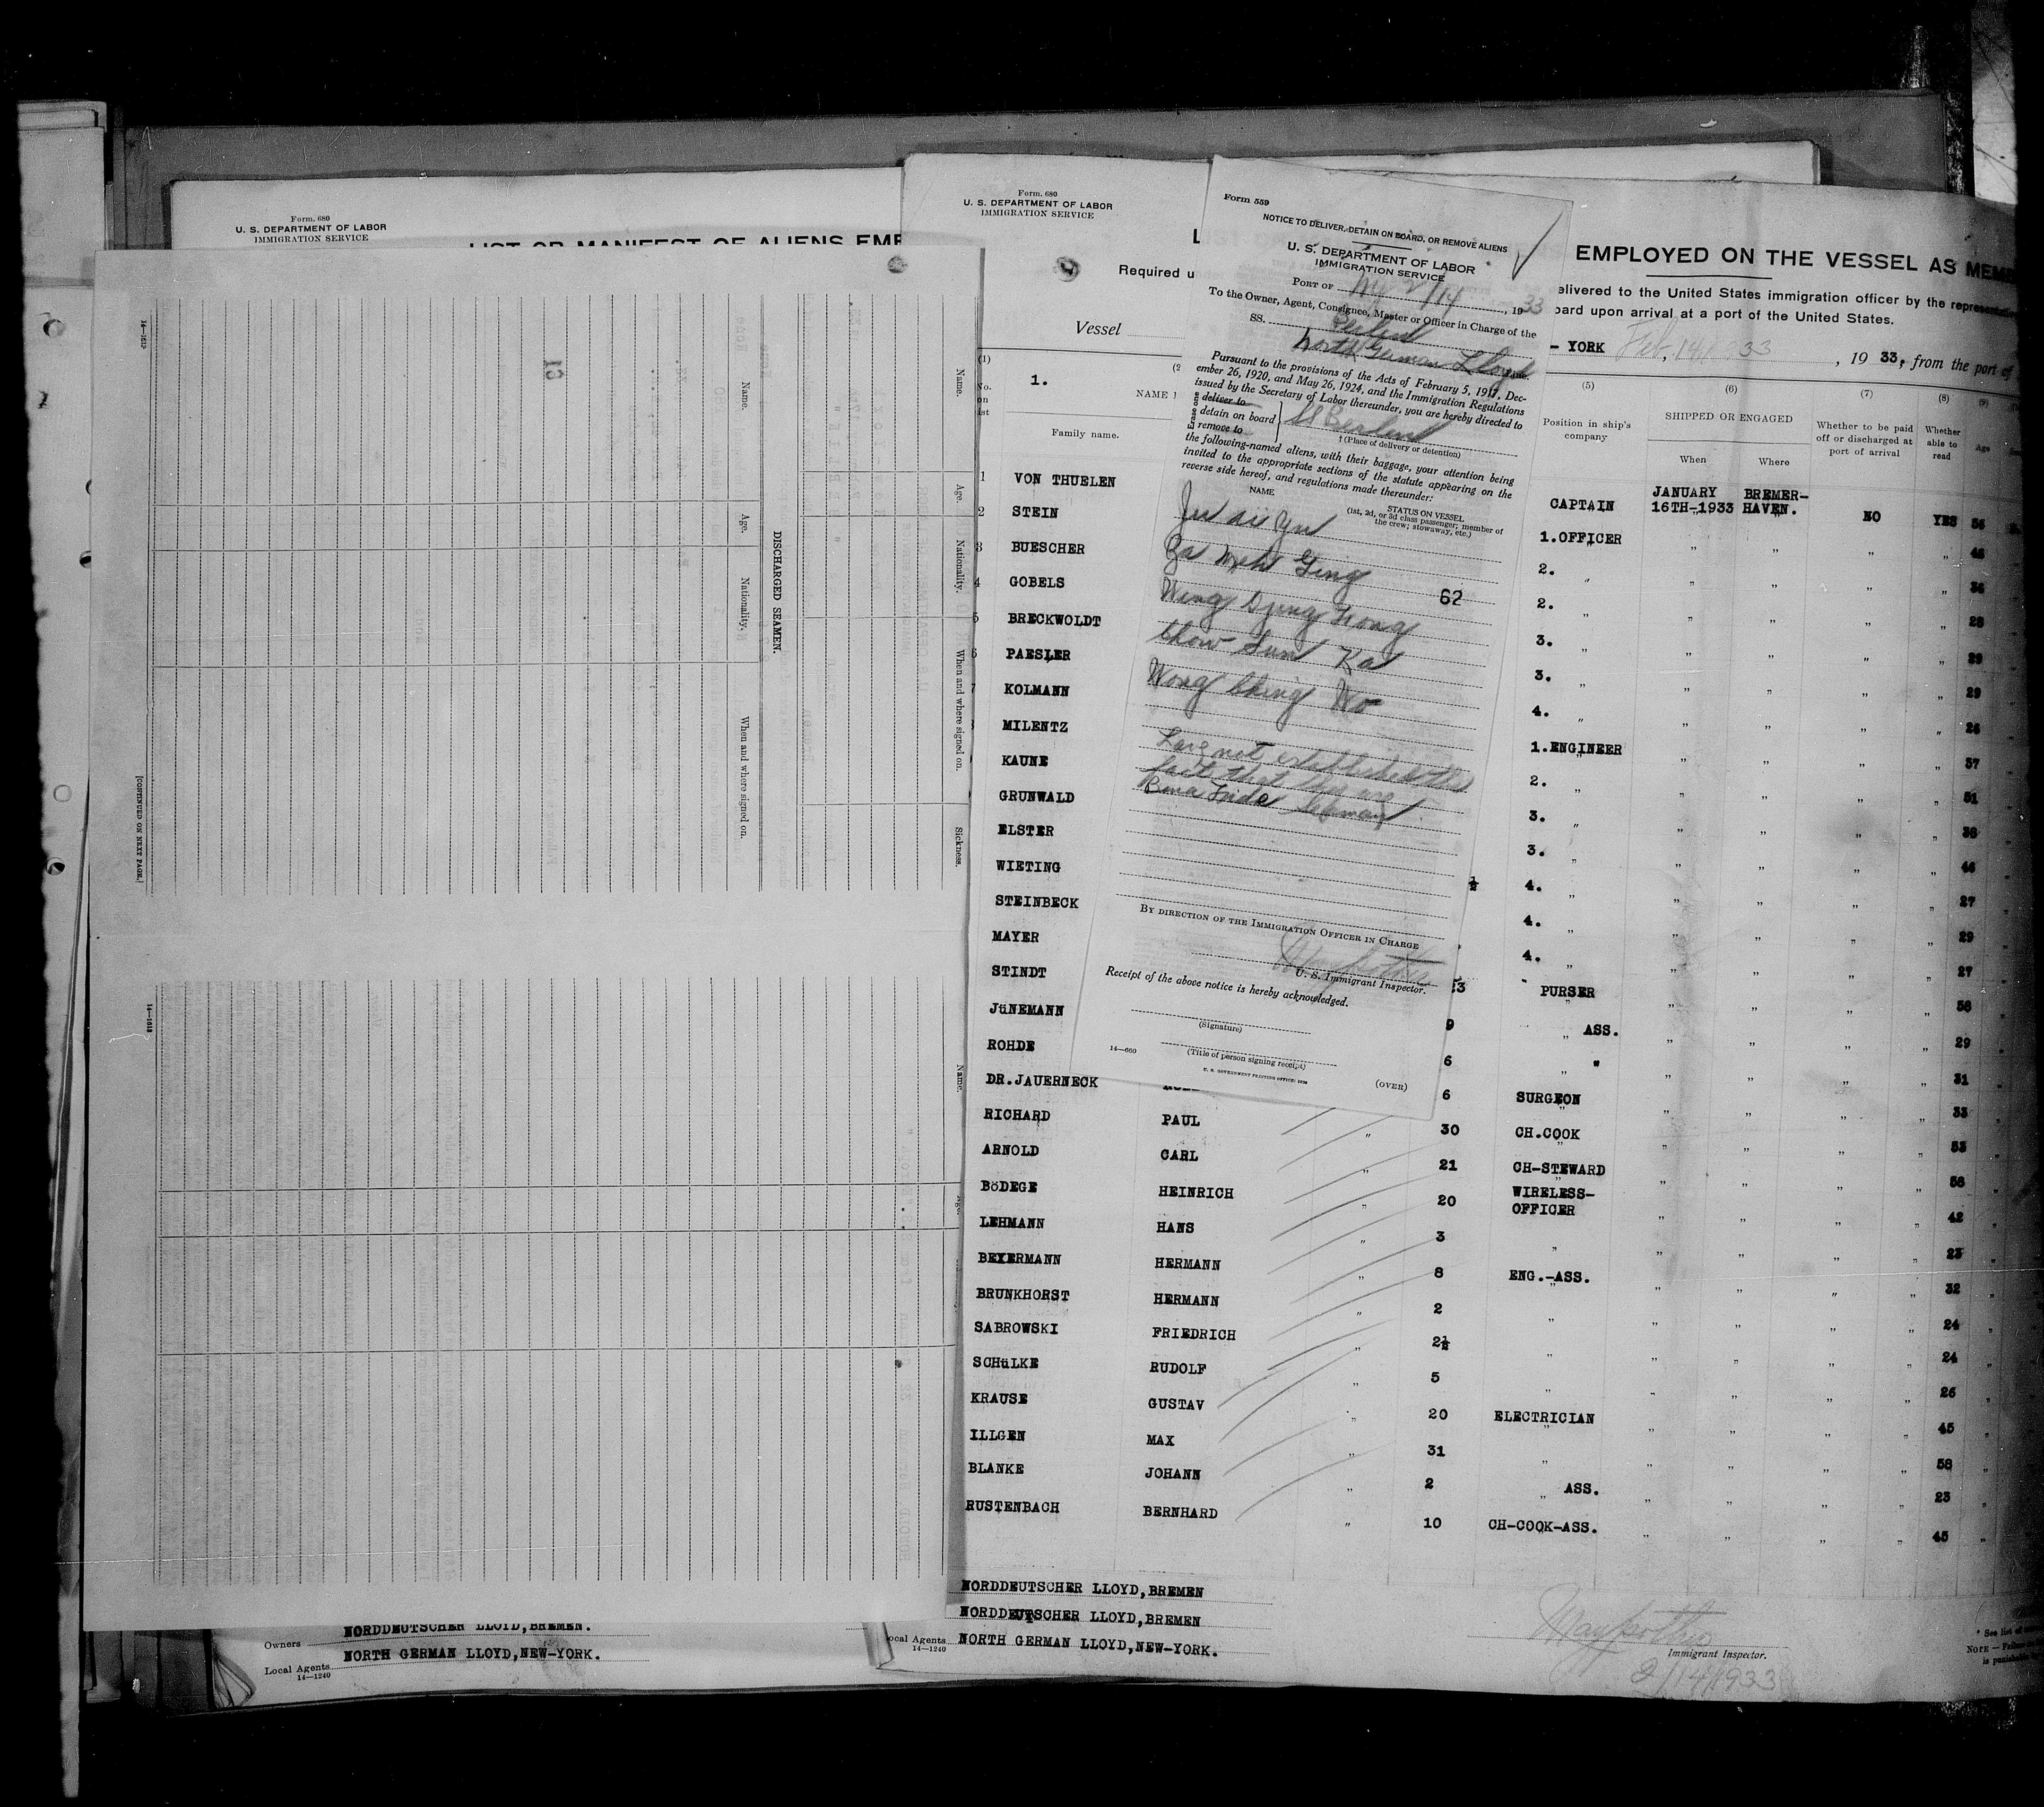 Form. 680
U. S. DEPARTMENT OF LABOR
IMMIGRATION SERVICE
LIST OR MANIFEST OF ALIENS EMP
14—1612
[CONTINUED ON NEXT PAGE.]
13
Name.
Age.
Nationality.
When and where signed on.
DISCHARGED SEAMEN.
Name.
Age.
Nationality.
When and where signed on.
Sickness.
14—1613
Name.
Age.
Owners NORDDEUTSCHER LLOYD,BREMEN.
Local Agents NORTH GERMAN LLOYD,NEW-YORK.
14—1240
Form. 680
U. S. DEPARTMENT OF LABOR
IMMIGRATION SERVICE
L
Required u
Vessel
EMPLOYED ON THE VESSEL AS MEMB
elivered to the United States immigration officer by the representati
oard upon arrival at a port of the United States.
- YORK Feb, 14, 33, 19 33, from the port of
(1)
No. on list
1.
NAME
Family name.
(5)
Position in ship's company
(6)
SHIPPED OR ENGAGED
When
Where
(7)
Whether to be paid off or discharged at port of arrival
(8)
Whether able to read
(9)
Age
1 VON THUELEN CAPTAIN JANUARY 16TH-1933 BREMER-HAVEN. NO YES 56
2 STEIN 1.OFFICER " " " " 46
3 BUESCHER 2. " " " " " 36
4 GOBELS 2. " " " " " 28
5 BRECKWOLDT 3. " " " " " 29
6 PAESLER 3. " " " " " 29
7 KOLMANN 4. " " " " " 26
MILENTZ 1.ENGINEER " " " " 57
KAUNE 2. " " " " " 51
GRUNWALD 3. " " " " " 38
ELSTER 3. " " " " " 46
WIETING ½ 4. " " " " " 27
STEINBECK 4. " " " " " 29
MAYER 4. " " " " " 27
STINDT 3 PURSER " " " " 58
JüNEMANN 9 " ASS. " " " " 29
ROHDE 6 " " " " " " 31
DR.JAUERNECK 6 SURGEON " " " " 33
RICHARD PAUL " 30 CH.COOK " " " " 53
ARNOLD CARL " 21 CH-STEWARD " " " " 58
BöDEGE HEINRICH " 20 WIRELESS-OFFICER " " " " 42
LEHMANN HANS " 3 " " " " " 23
BEYERMANN HERMANN " 8 ENG.-ASS. " " " " 32
BRUNKHORST HERMANN " 2 " " " " " 24
SABROWSKI FRIEDRICH " 2½ " " " " " 24
SCHüLKE RUDOLF " 5 " " " " " 26
KRAUSE GUSTAV " 20 ELECTRICIAN " " " " 45
ILLGEN MAX " 31 " " " " " 58
BLANKE JOHANN " 2 " ASS. " " " " 23
RUSTENBACH BERNHARD " 10 CH-COOK-ASS. " " " " 45
NORDDEUTSCHER LLOYD,BREMEN
NORDDEUTSCHER LLOYD,BREMEN
ocal Agents NORTH GERMAN LLOYD,NEW-YORK.
14—1240
Immigrant Inspector.
2/14/1933
* See list of
NOTE — Failure
is punishable
Form 559
NOTICE TO DELIVER, DETAIN ON BOARD, OR REMOVE ALIENS
U. S. DEPARTMENT OF LABOR
IMMIGRATION SERVICE
PORT OF NY 2/14, 1933
To the Owner, Agent, Consignee, Master or Officer in Charge of the
SS. Berlin
North German Lloyd
Pursuant to the provisions of the Acts of February 5, 1917, Dec-
ember 26, 1920, and May 26, 1924, and the Immigration Regulations
issued by the Secretary of Labor thereunder, you are hereby directed to
Erase one
deliver to
detain on board
remove to
SS Berlin
† (Place of delivery or detention)
the following-named aliens, with their baggage, your attention being
invited to the appropriate sections of the statute appearing on the
reverse side hereof, and regulations made thereunder:
NAME
STATUS ON VESSEL
(1st, 2d, or 3d class passenger; member of
the crew; stowaway, etc.)
Ju ai Yu
Za Meh Ging
62
Wing Djung Fong
Chow Sun Ka
Wong Ching Wo
not established the
fact that they are
Bona Fide Seaman
BY DIRECTION OF THE IMMIGRATION OFFICER IN CHARGE
U. S. Immigrant Inspector.
Receipt of the above notice is hereby acknowledged.
(Signature)
(Title of person signing receipt)
14—660
U. S. GOVERNMENT PRINTING OFFICE:
(OVER)